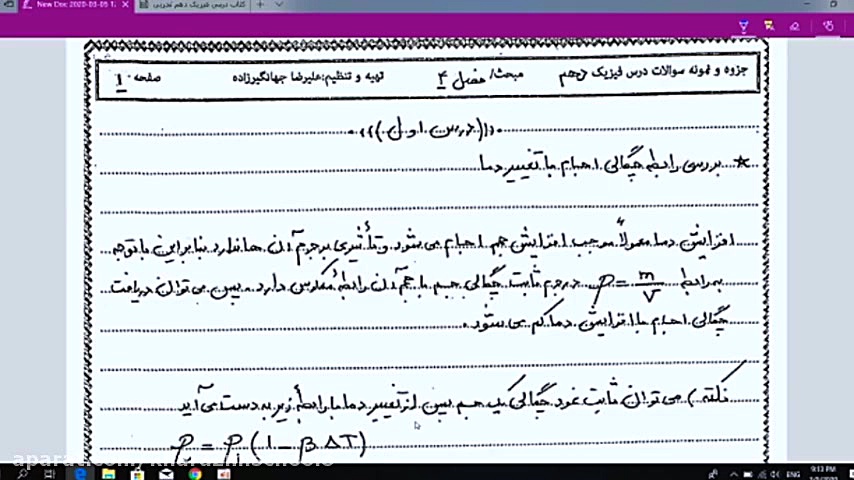 New Doc 2020-03-05 1
کتاب درسی فیزیک دهم تجربی
جزوه و نمونه سوالات درس فیزیک دهم مبحث/ فصل ۴ تهیه و تنظیم:علیرضا جهانگیرزاده صفحه ۱
(((درس اول)))
* بررسی رابطه چگالی اجسام با تغییر دما
افزایش دما معمولاً موجب افزایش حجم اجسام می شود و تأثیری بر جرم آن ها ندارد بنابراین با توجه
به رابطه ρ = m/V در جرم ثابت چگالی جسم با حجم آن رابطهٔ معکوس دارد. پس می توان دریافت
چگالی اجسام با افزایش دما کم می شود.
نکته) می توان ثابت نمود چگالی یک جسم پس از تغییر دما با رابطهٔ زیر به دست می آید
ρ₂ = ρ₁ (1 - β ΔT)
ENG
9:13 PM